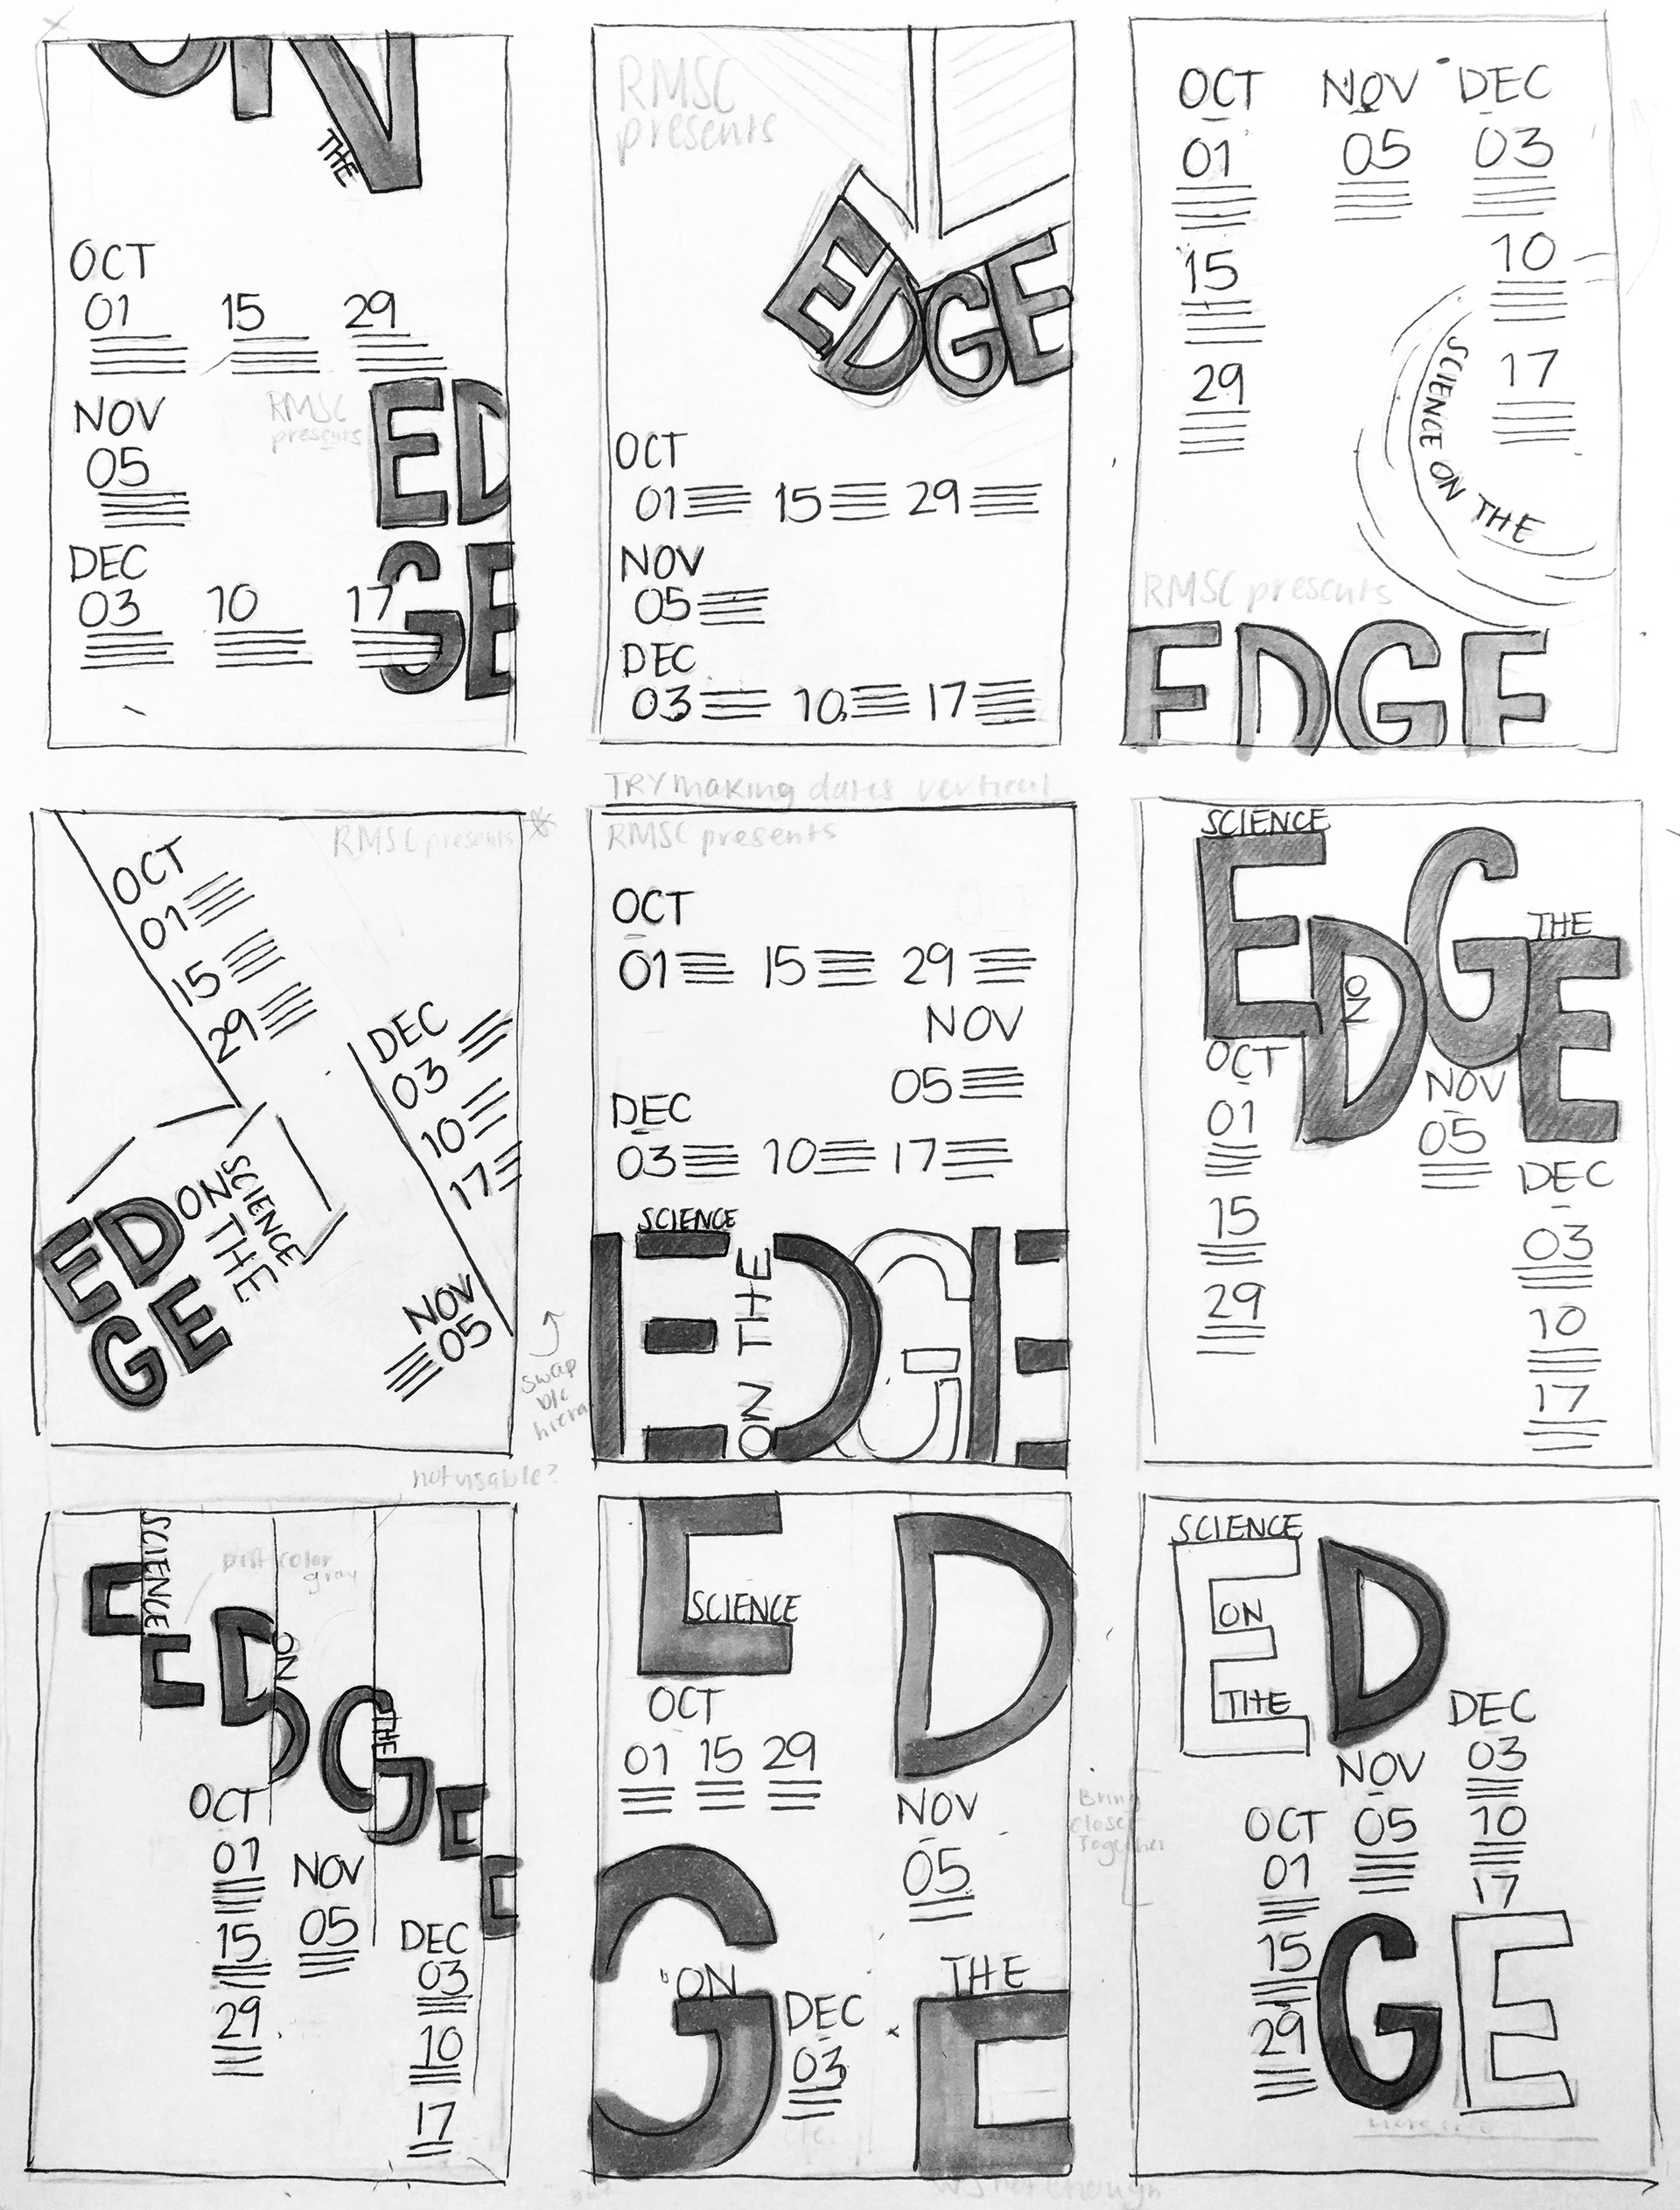 ON
THE
OCT
01 15 29
NOV
05
RMSC
presents
ED
GE
DEC
03 10 17
RMSC
presents
EDGE
OCT
01 15 29
NOV
05
DEC
03 10 17
OCT NOV DEC
01 05 03
15 10
29 17
SCIENCE ON THE
RMSC presents
EDGE
TRY making dates vertical
RMSC presents
OCT
01
15
29
DEC
03
10
17
NOV
05
SCIENCE
ON THE
ED
GE
swap
hiera
RMSC presents
OCT
01 15 29
NOV
05
DEC
03 10 17
SCIENCE
ON THE
EDGE
SCIENCE
EDGE
ON
THE
OCT
01
15
29
NOV
05
DEC
03
10
17
not usable?
SCIENCE
color
gray
EDGE
ON
THE
OCT
01
15
29
NOV
05
DEC
03
10
17
ED
SCIENCE
OCT
01 15 29
NOV
05
GE
ON
THE
DEC
03
Bring
closer
Together
SCIENCE
ED
ON
THE
DEC
03
10
17
NOV
05
OCT
01
15
29
GE